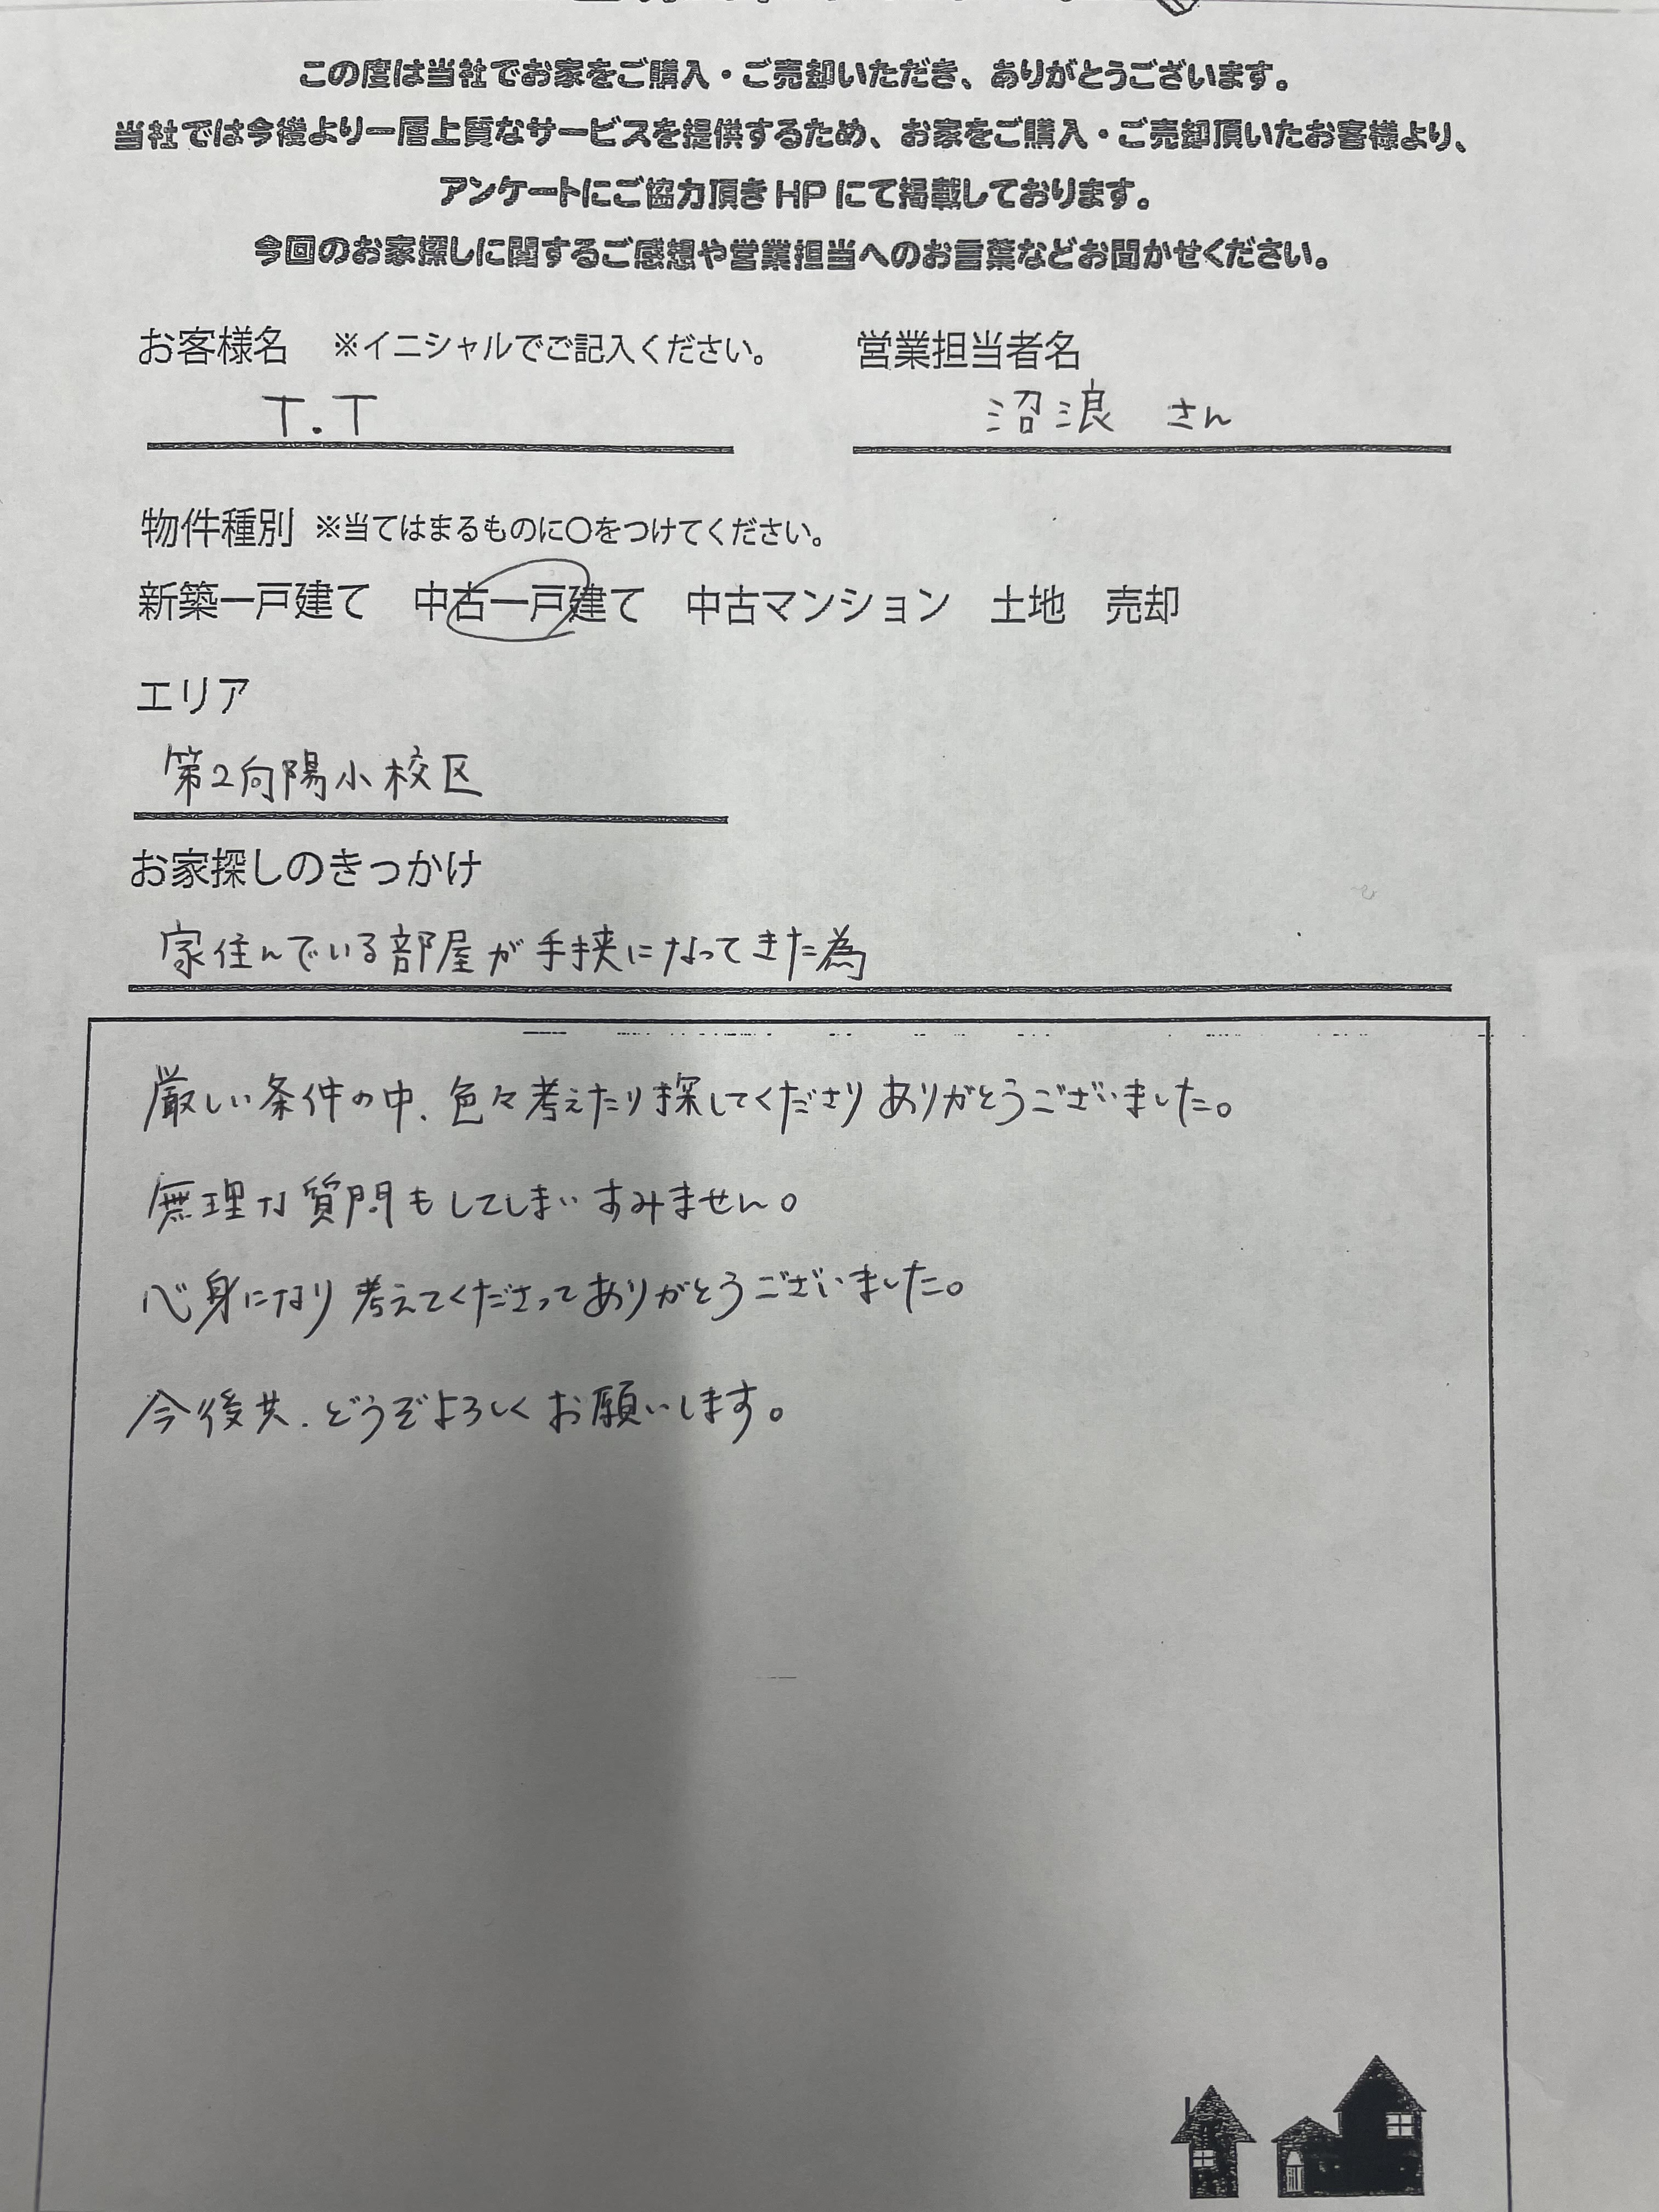 この度は当社でお家をご購入・ご売却いただき、ありがとうございます。
当社では今後より一層上質なサービスを提供するため、お家をご購入・ご売却頂いたお客様より、
アンケートにご協力頂きHPにて掲載しております。
今回のお家探しに関するご感想や営業担当へのお言葉などお聞かせください。
お客様名 ※イニシャルでご記入ください。 営業担当者名
T.T 沼浪 さん
物件種別 ※当てはまるものに〇をつけてください。
新築一戸建て 中古一戸建て 中古マンション 土地 売却
エリア
第2向陽小校区
お家探しのきっかけ
家住んでいる部屋が手挟になってきた為
厳しい条件の中、色々考えたり探してくださりありがとうございました。
無理な質問もしてしまいすみません。
心身になり考えてくださってありがとうございました。
今後共、どうぞよろしくお願いします。